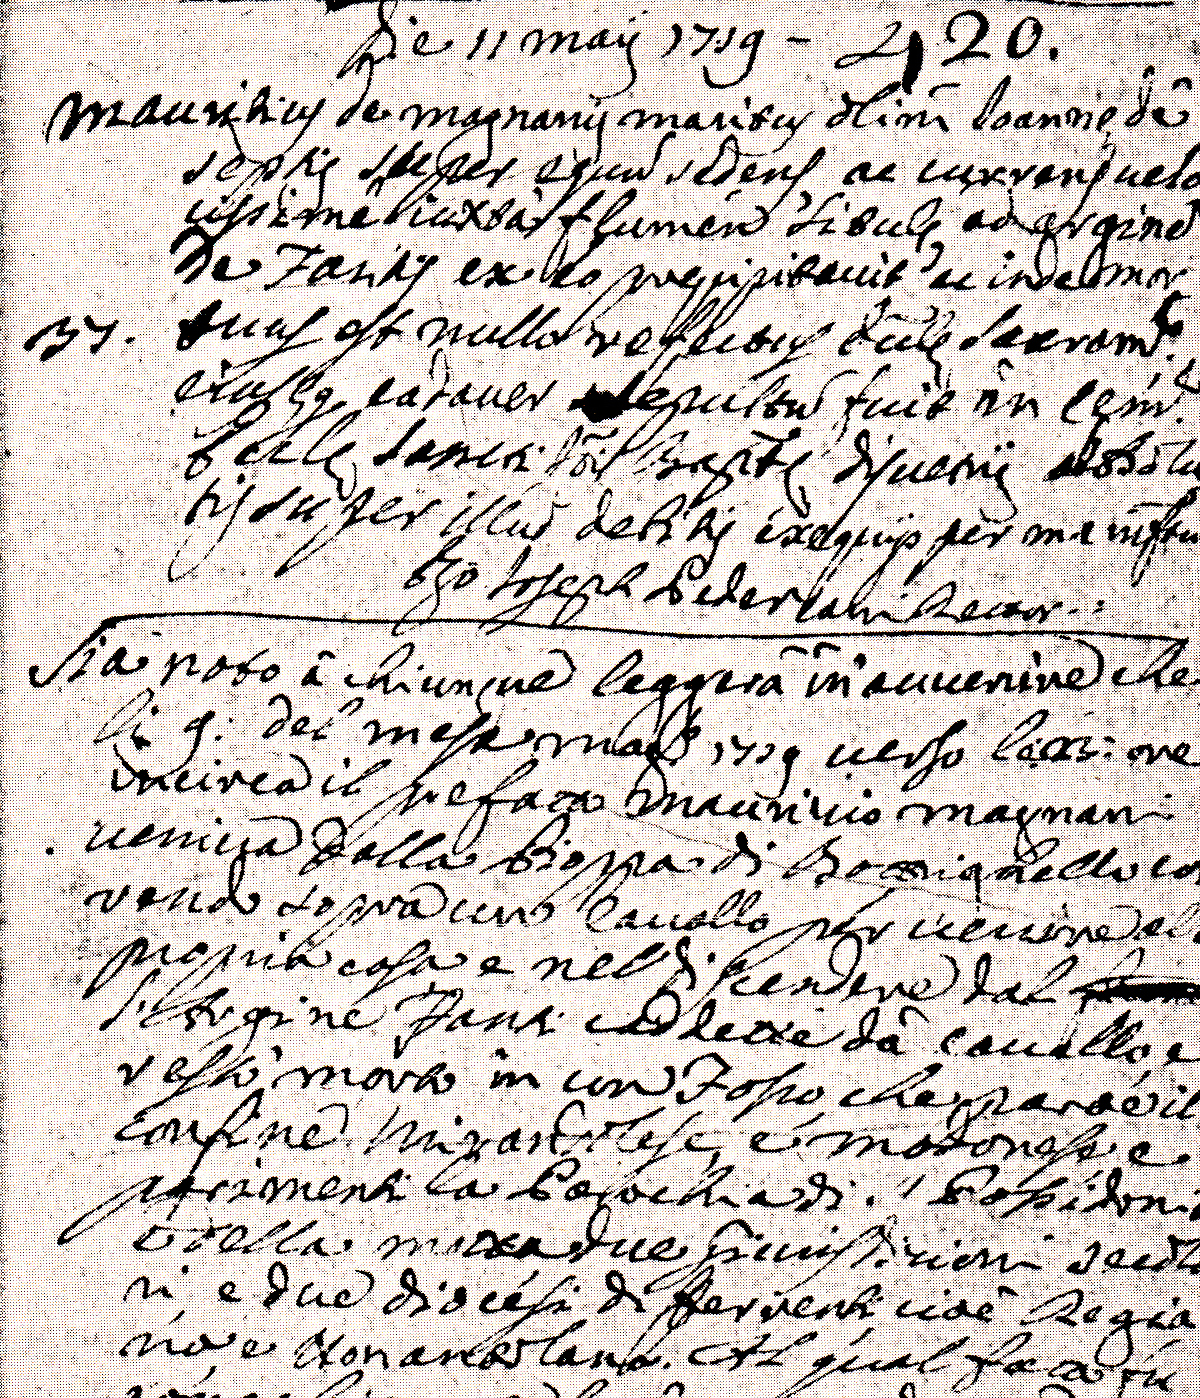 Die 11 maij 1719 - 420.
Mauritius de magnanij maritus olim Joannę de
septis super equum sedens ac currens uelo
cissime iuxta flumen Situlę ad arginem
de Fantis ex eo precipitauit ac inde mor
37. tuus est nullo refectus Eccle Sacram.to
eiusq cadauer sepultum fuit in Cem.
Ecclę Sancti Baptę absolu
tis super illud debitis exequijs per me infra
Ego Joseph Pederzani Rector
Sia noto à chiunque leggerà in auuenire che
li 9: del mese mag. 1719 uerso le ore
incirca il prefato Maurizio magnani
ueniua dalla Pioppa di cor
rendo sopra un Cauallo per uenire al
propria casa e nel discendere dal
l'Argine Fanti caddette dà cauallo, e
restò morto in un Fosso che parte il
confine Mirandolese, e modonese e
parimenti la Parochia di S. Possidoni
e della due Giurisdizioni secola
ri, e due diocesi differenti cioè Regia
na e Nonantolana. Al qual